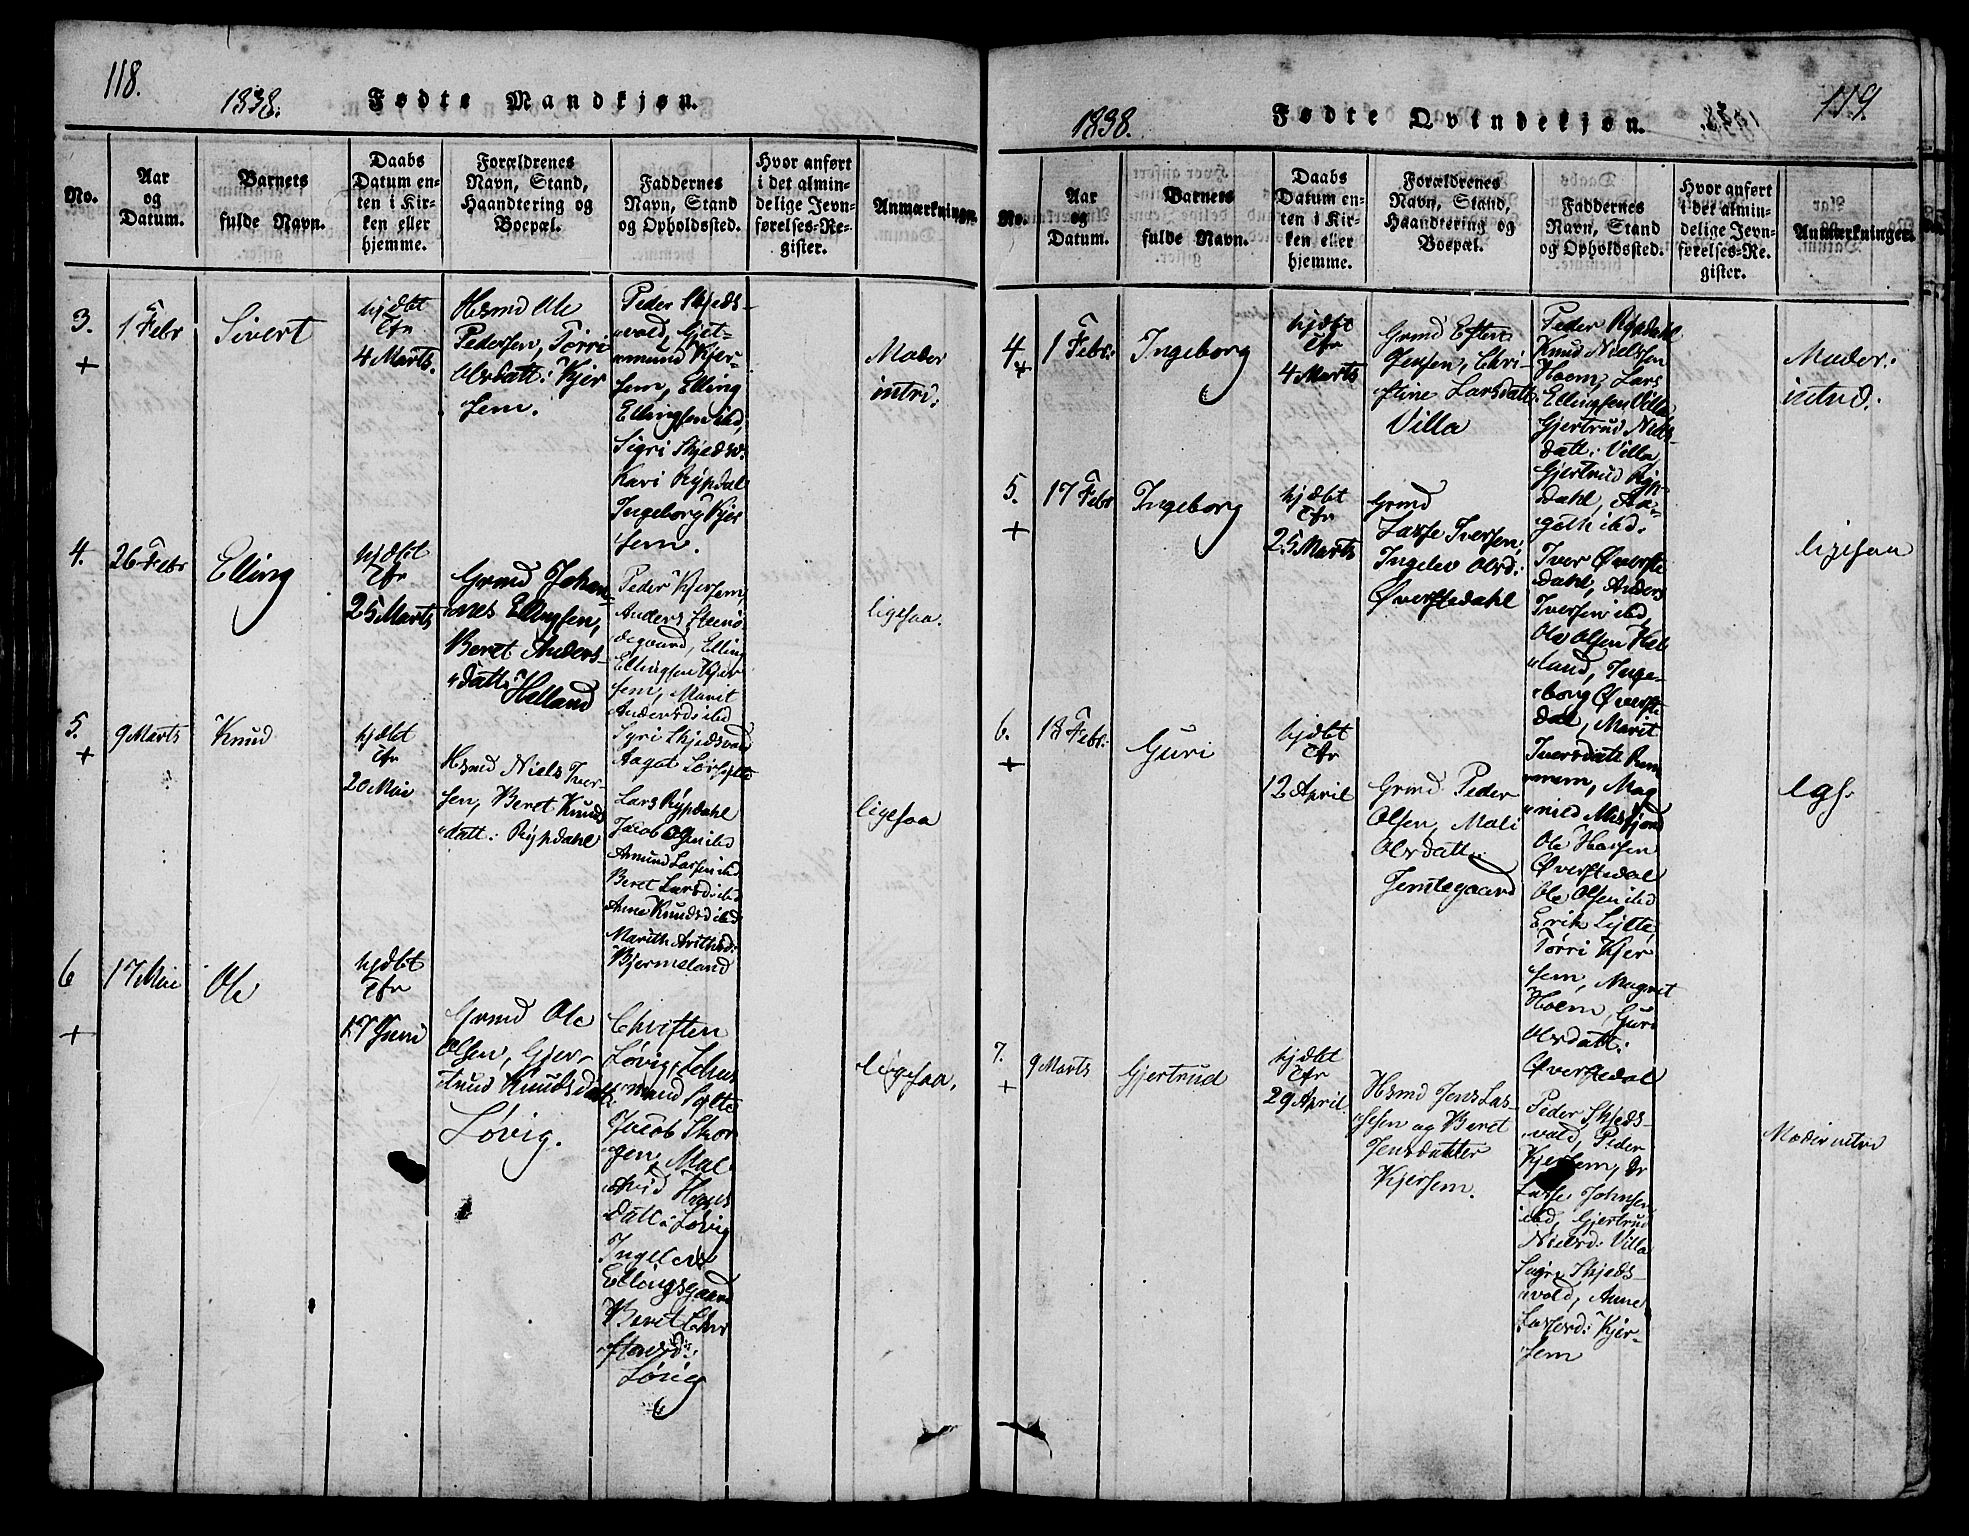 118.
1838.
Fødte Mandkjøn.
No.
Aar
og
Datum.
Barnets
fulde Navn.
Daabs
Datum en-
ten i Kir-
ken eller
hjemme.
Forældrenes
Navn, Stand,
Haandtering og
Boepæl.
Faddernes
Navn, Stand
og Opholdssted.
Hvor anført
i det almin-
delige Jevn-
førelses-Re-
gister.
Anmærkninger.
3.
+
1 Febr
Sivert
hjdbt
Cfr
4 Marts.
Hsmd Ole
Pedersen, Tørri
Olsdatt: Kjer
sem.
Peder Skjeds-
vold,
mund Kjer-
sem, Elling
Ellingsen ibd,
Sigri Skjedsv:
Kari Rypdal
Ingeborg Kjer
sem.
Moder
intrd:
4.
26 Febr
Elling
hjdbt
Cfr
25 Marts
Grmd Johan-
nes Ellingsen,
Beret Anders-
datt: Helland
Peder Kjersem
Anders
degaard, Elling
Ellingsen Kjer
sem, Marit
Andersd: ibd
Syri Skjedsvold
Aagot
ligesaa.
5.
+
9 Marts
Knud
hjdbt
Cfr
20 Mai
Hsmd Niels Iver-
sen, Beret Knuds
datt: Rypdahl
Lars Rypdahl
Jacob ibd
Amund Larsen ibd
Beret Larsd: ibd
Anne Knudsd ibd
Marith
Bjermeland
ligesaa
6
+
17 Mai
Ole
hjdbt
Cfr
17 Juni
Grmd Ole
Olsen, Gjer-
trud Knudsdatt:
Løvig.
Christen
Løvig,
mund Sylte
Jacob Skor
gen, Mal
Hans
datt: Løvig
Ellingsgaard
Beret Chri
Løvig
ligesaa.
119
1838.
Fødte Qvindekjøn.
No.
Aar
og
Datum.
Barnets
fulde Navn.
Daabs
Datum en-
ten i Kir-
ken eller
hjemme.
Forældrenes
Navn, Stand,
Haandtering og
Boepæl.
Faddernes
Navn, Stand
og Opholdssted.
Hvor anført
i det almin-
delige Jevn-
førelses-Re-
gister.
Anmærkninger.
4.
+
1 Febr:
Ingeborg
hjdbt
Cfr
4 Marts
Grmd Esten
Jensen, Chri-
stine Larsdatt:
Villa
Peder Rypdahl
Knud Nielsen
Hoem, Lars
Ellingsen Villa
Gjertrud Niels-
datt: Villa
Gjertrud Ryp
dahl, Aa-
goth ibd.
Moder:
intrd:
5.
+
17 Febr
Ingeborg
hjdbt
Cfr
25 Marts
Grmd
Lasse Iversen,
Ingelev Olsd:
Øverstedahl
Iver Øverste
dahl, Anders
Iversen ibd
Ole Olsen Hel
land, Inge-
borg Øverste
dal, Marit
Iversdatt Rem
mem, Mag
nild Misfjord
ligesaa
6.
+
18 Febr:
Guri
hjdbt
Cfr
12 April
Grmd Peder
Olsen, Mali
Olsdatt:
Jemtegaard
Ole Hansen
Øverstedal
Ole Olsen ibd
Erik Sylte,
Tørri Kjer
sem, Magret
Hoem, Guri
Olsdatt:
Øverstedal
lgs.
7.
+
9 Marts
Gjertrud
hjdbt
Cfr
29 April
Hsmd Jens Las-
sesen og Beret
Jensdatter
Kjersem.
Peder Skjeds-
vold, Peder
Kjersem,
Lasse Johnsen
ibd, Gjertrud
Nielsd: Villa
Skjeds-
vold, Anne
Lassesd: Kjer-
sem
Moder intrd